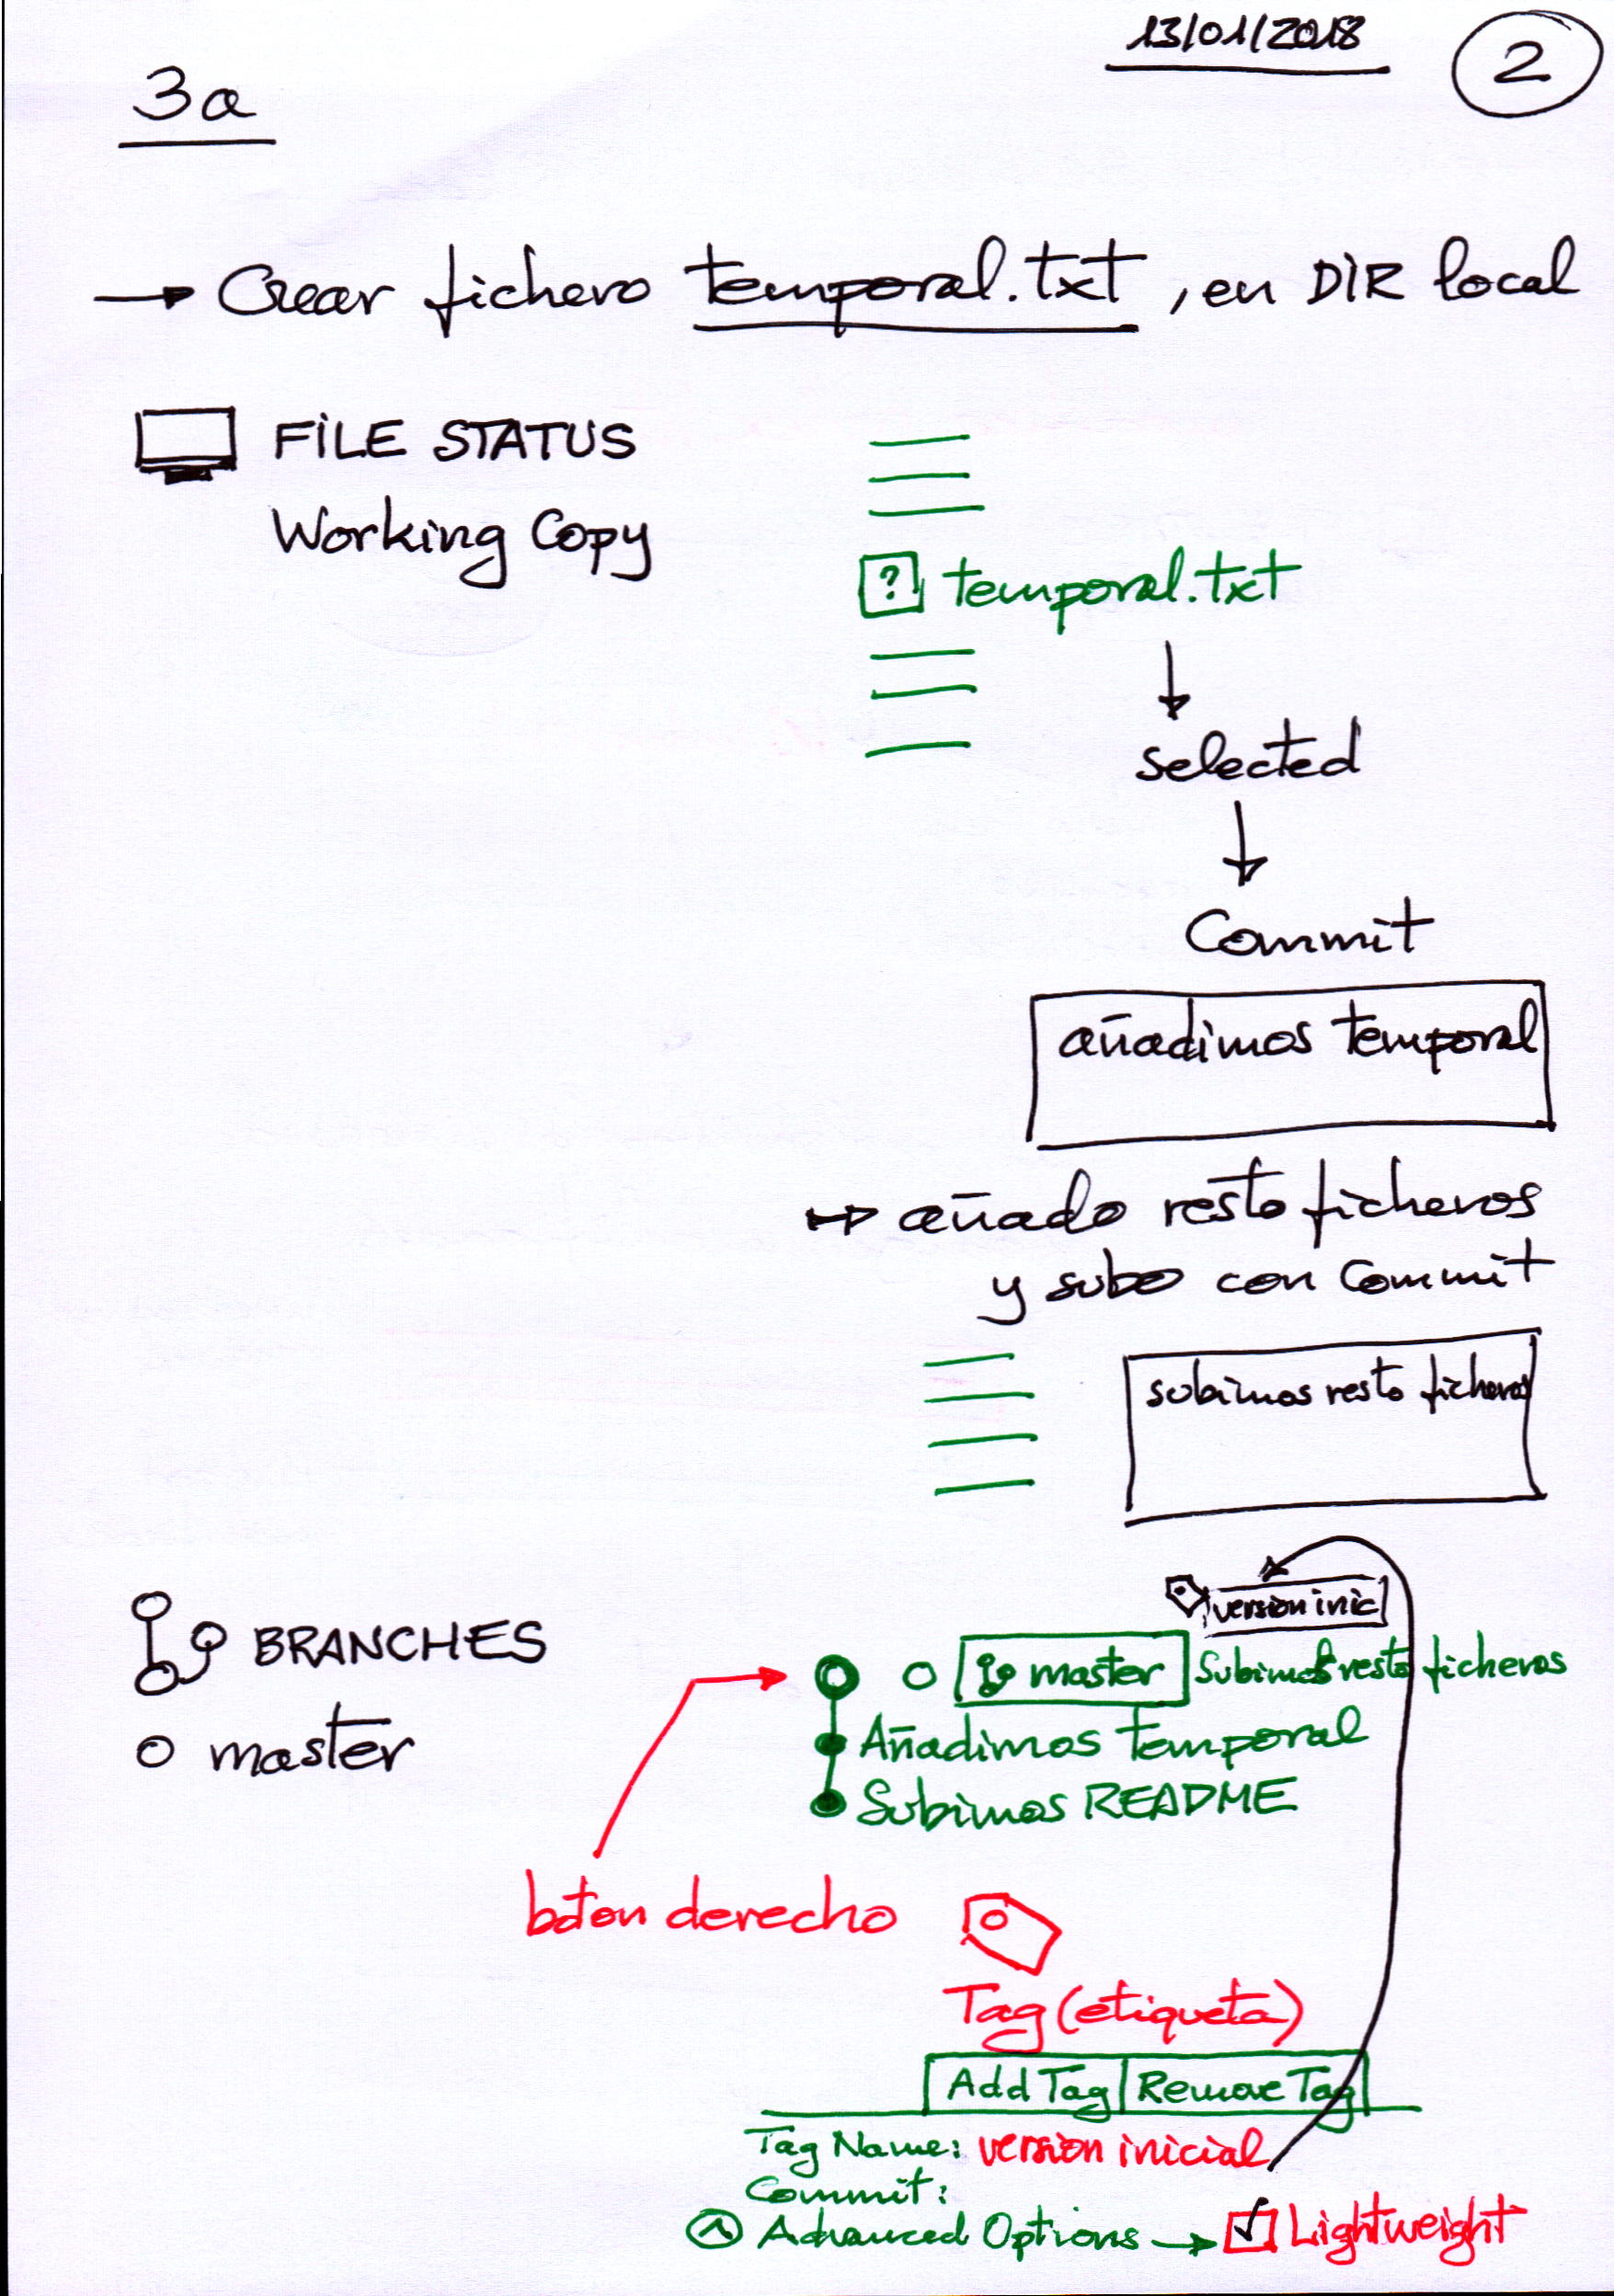 13/01/2018
2
3a
→ Crear fichero temporal.txt, en DIR local
FILE STATUS
Working Copy
? temporal.txt
selected
Commit
añadimos temporal
↦ añado resto ficheros
y subo con Commit
subimos resto ficheros
version inic
BRANCHES
master
master Subimos resto ficheros
Añadimos temporal
Subimos README
boton derecho
Tag (etiqueta)
Add Tag Remove Tag
Tag Name: version inicial
Commit:
Advanced Options → Lightweight